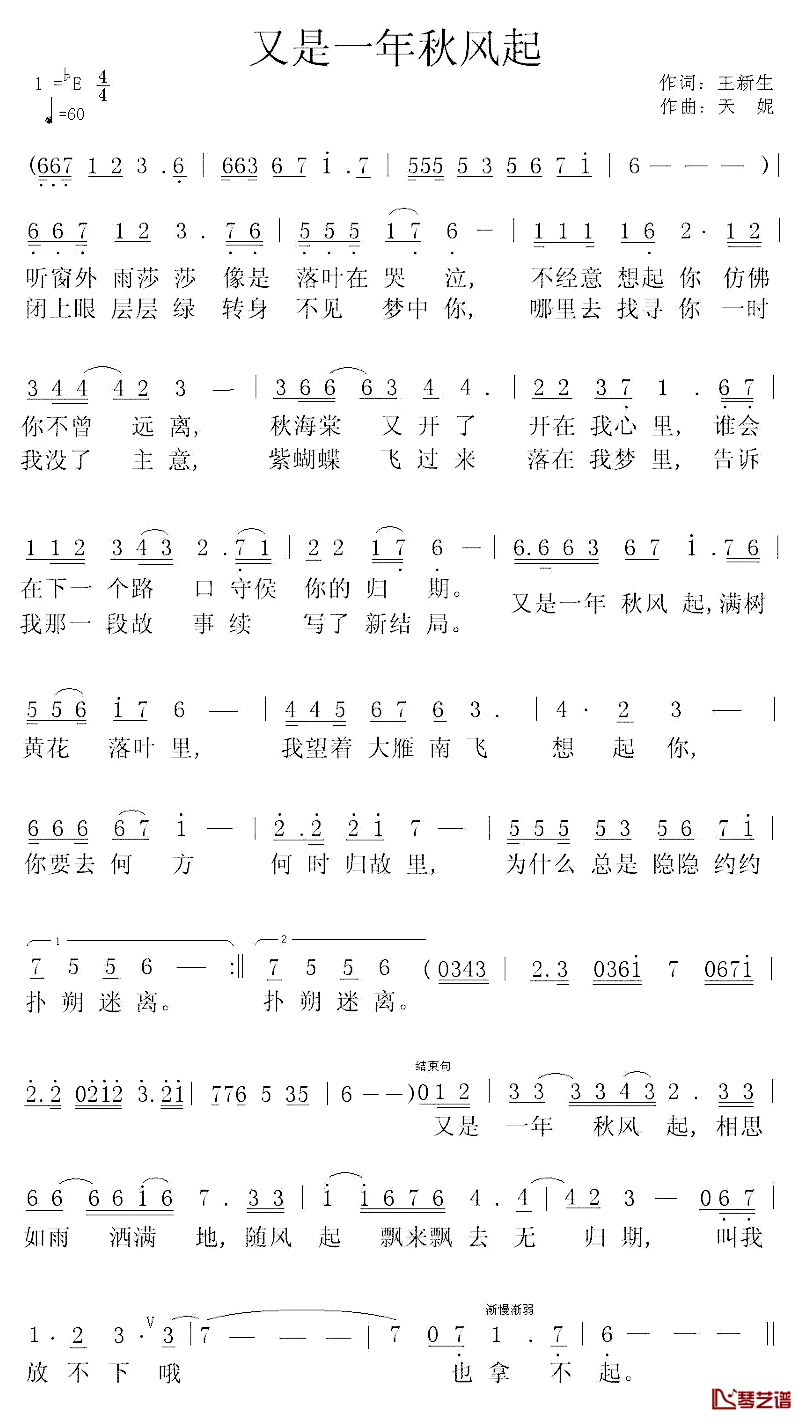 又是一年秋风起
1=♭E 4/4
作词：王新生
♩=60
作曲：天 妮
(667 123.6 | 663 67i.7 | 555 53 567i | 6———)|
667 123.76 | 555 176— | 111 162·12 |
听窗外 雨莎莎 像是 落叶在 哭 泣， 不经意 想起你 仿佛
闭上眼 层层绿 转身 不见 梦中你， 哪里去 找寻你 一时
344 423— | 366 6344. | 22 371.67 |
你不曾 远离， 秋海棠 又开了 开在我心里，谁会
我没了 主意， 紫蝴蝶 飞过来 落在我梦里，告诉
112 3432.71 | 22 176— | 6.663 67i.76 |
在下一 个路 口守侯 你的归 期。 又是一年 秋风 起,满树
我那一 段故 事续 写了新结局。
556 i76— | 445 6763. | 4·23— |
黄花 落叶里， 我望着 大雁南飞 想 起 你，
666 67i— | 2.2 2i7— | 555 53 56 7i |
你要去 何 方 何时归故里， 为什么 总是 隐隐 约约
1 2
7556—:‖ 7556 (0343 | 2.3 036i 7 067i |
扑朔迷离。 扑朔迷离。
结束句
2.2 02i2 3.2i | 776 5 35 | 6——)012 | 33 3343 2.33 |
又是 一年 秋风 起，相思
66 66i6 7.33 | i i676 4.4 | 423— 067 |
如雨 洒满 地，随风 起 飘来飘去 无 归期， 叫我
渐慢渐弱
1·23·V3 | 7——— | 7 07 1.7 | 6———‖
放不下 哦 也拿不起。
琴艺谱